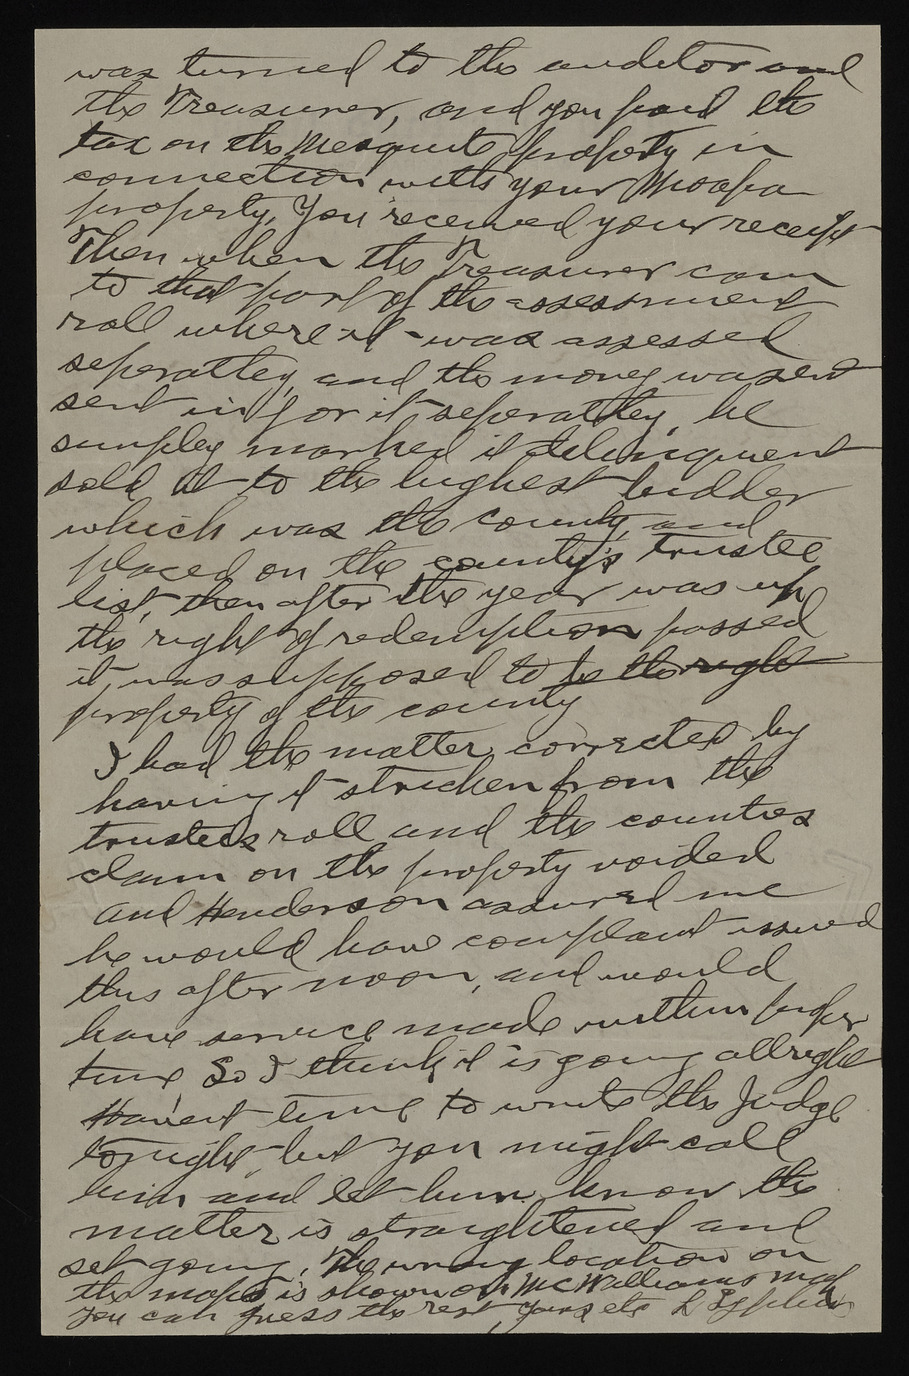 was turned to the auditor and
the Treasurer, and you paid the
tax on the Mesquite property in
connection with your Moapa
property, You received your receipt
Then when the Treasurer cam
to that part of the assessment
roll where it was assessed
seperatley, and the money was sent
sent in for it seperatley, he
simpley marked it delinquent
sold it to the highest bidder
which was the county, and
placed on the county's trustee
list, then after the year was up
the right of redemption passed
it was supposed to be the right
property of the county
I had the matter corrected by
having it stricken from the
trustees roll and the counties
claim on the property voided
and Henderson assured me
he would have complaint issued
this after noon, and would
have service made within proper
time So I think it is going allright
Haven't time to write the Judge
tonight, but you might call
him and let him know the
matter is straightened and
set going, The wrong location on
the maps is shown on McWilliams map
You can guess the rest, Yours etc L